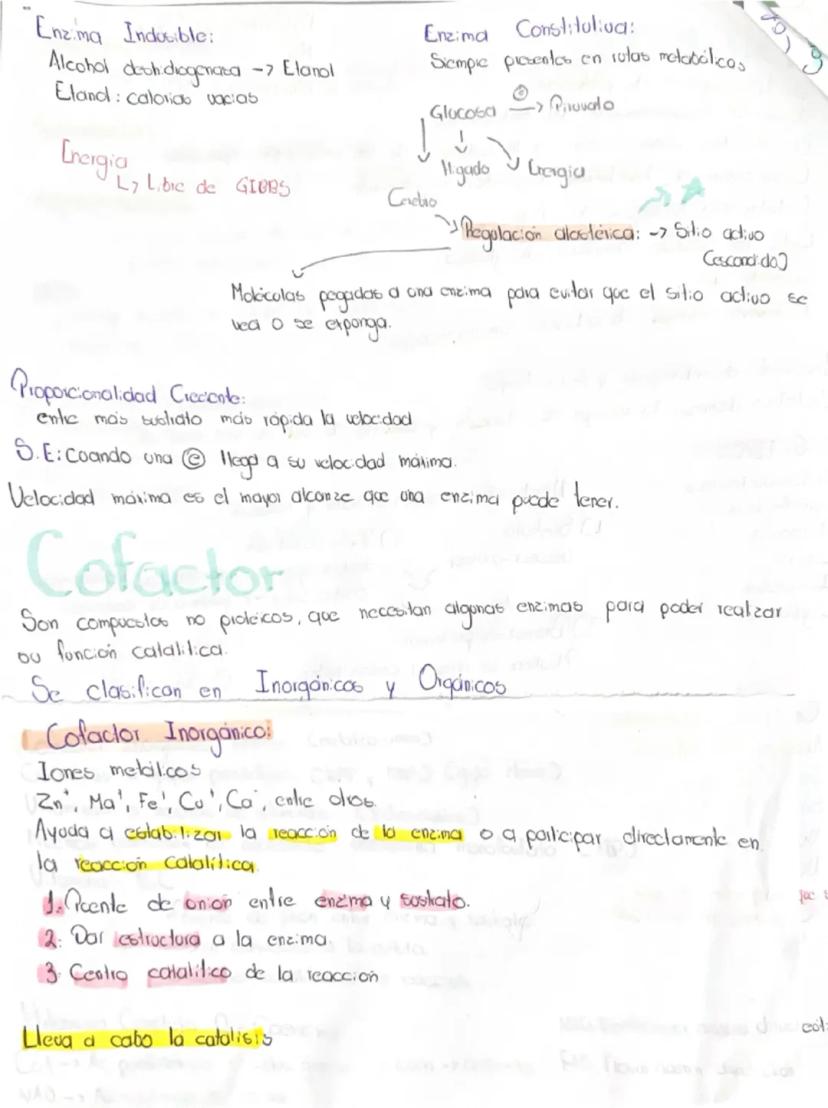 Enzima Inducible:
Alcohol deshidrogenasa -> Etanol
Etanol: calorias vacias
Energia
↳ Libre de GIBBS
Enzima Constitutiva:
Siempre presentes en rutas metabólicas
Glucosa ⓔ -> Piruvato
Hígado Energia
Cerebro
Regulación alostérica: -> Sitio activo
(escondido)
Moléculas pegadas a una enzima para evitar que el sitio activo se
vea o se exponga.
Proporcionalidad Creciente:
entre más sustrato más rápida la velocidad
S.E: Cuando una ⓔ llega a su velocidad máxima.
Velocidad máxima es el mayor alcanze que una enzima puede tener.
Cofactor
Son compuestos no proteicos, que necesitan algunas enzimas para poder realizar
su función catalitica.
Se clasifican en Inorgánicos y Orgánicos
Cofactor Inorgánico:
Iones metálicos
Zn⁺, Ma⁺, Fe⁺, Cu⁺, Ca⁺, entre otros
Ayuda a estabilizar la reacción de la enzima o a participar directamente en
la reacción Catalítica.
1. Puente de union entre enzima y sustrato.
2. Dar estructura a la enzima
3. Centro catalitico de la reaccion
Lleva a cabo la catalisis